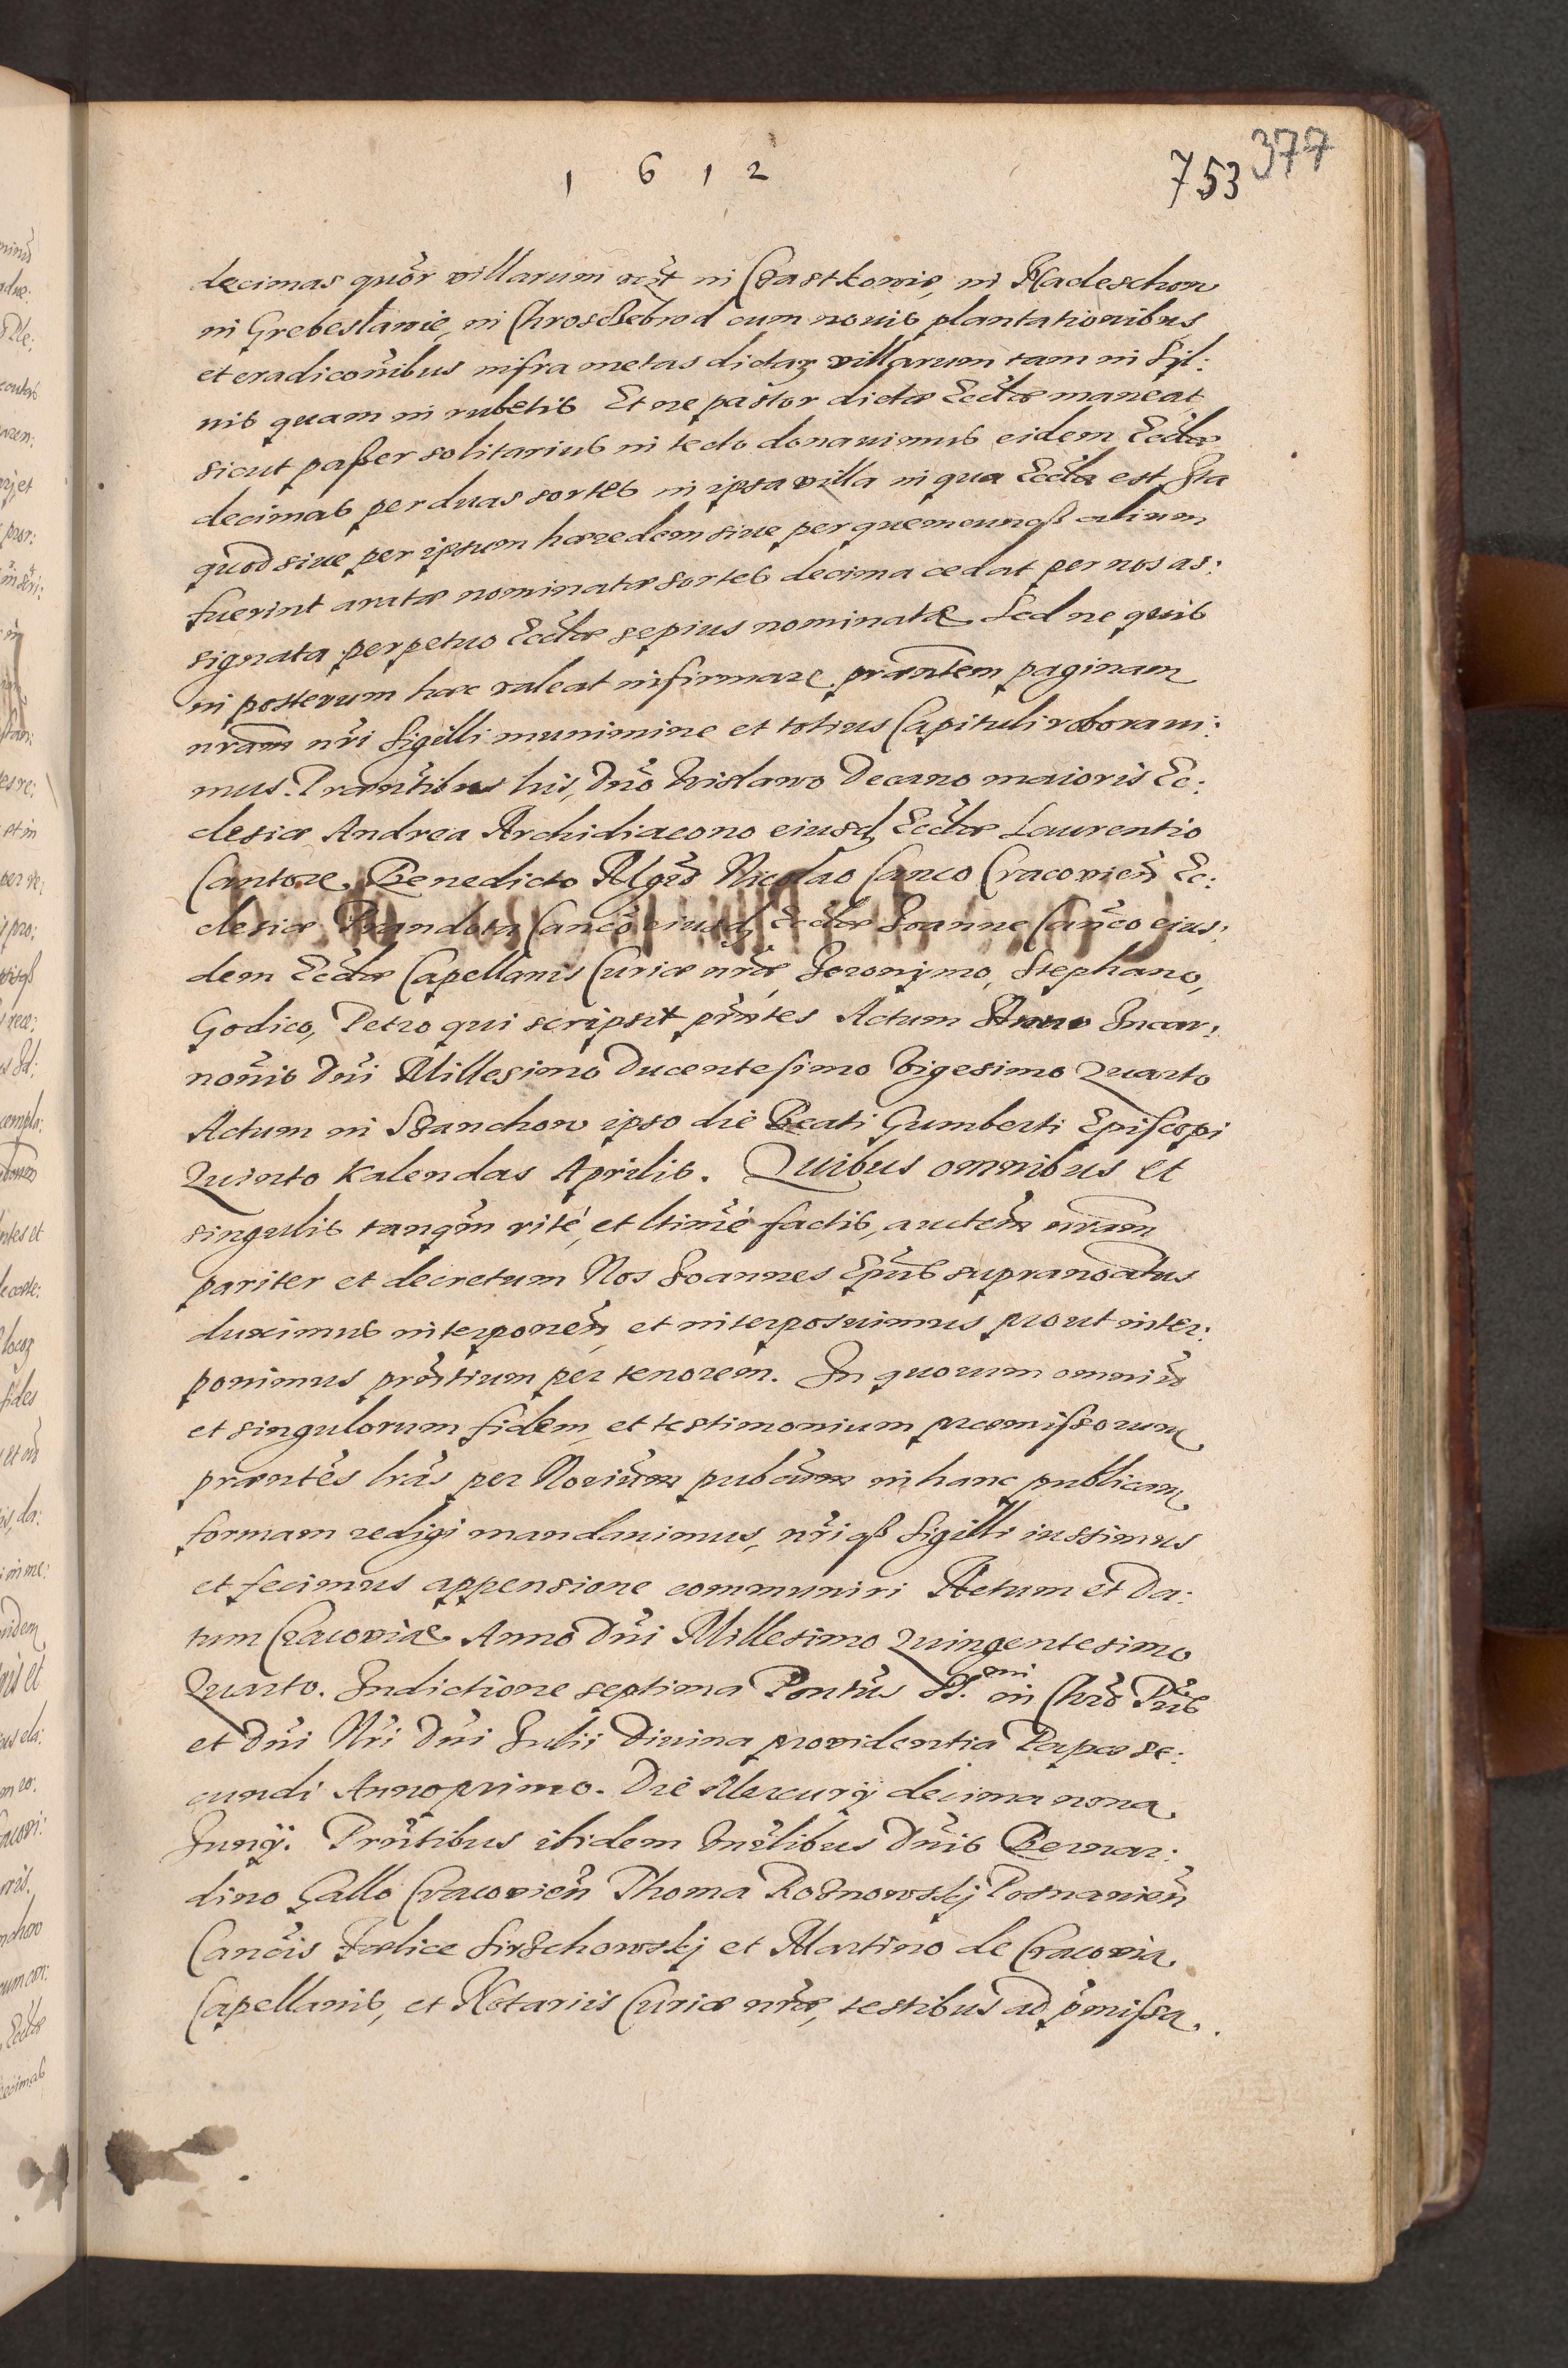 1612
753 377
decimas quõr villarum vt̃ in Czastkowie, in Radeschow
in Grebeslawie, in Chroschebrod cum novis plantationibus
et eradicoñibus infra metas dictaȝ villarum tam in Syl:
vis quam in rubetis Et ne pastor dictæ Eccłæ maneat
sicut passer solitarius in tecto donavimus eidem Eccłæ
decimas per duas sortes in ipsa villa in qua Eccła est Ita
quod sive per ipsum hæredem sive per quemcunqß alium
fuerint aratæ nominatæ sortes decima cedat per nos as:
signata perpetuo Eccłæ sepius nominatæ. Sed ne quis
in posterum hæc valeat infirmare præntem paginam
nram nri Sigilli munimine et totius Capituli roboravi:
mus. Præntibus his, Dno Wislawo Decano maioris Ec:
clesiæ Andrea Archidiacono eiusd Eccłæ Laurentio
Cantore, Benedicto Mgro Nicolao Canco Cracovien Ec:
clesiæ Prandota Canco eiusd Eccłæ Joanne Canco eius:
dem Eccłæ Capellanis Curiæ nræ Joronymo, Stephano,
Godico, Petro qui scripsit pñtes Actum Anno Incar:
nonis Dni Millesimo Ducentesimo Vigesimo Quarto
Actum in Szanchow ipso die Beati Gumberti Episcopi
Quinto Kalendas Aprilis. Quibus omnibus et
singulis tanqm rité, et ltimé factis, auctem nram
pariter et decretum Nos Joannes Epus supranoatus
duximus interponen, et interposuimus prout inter:
ponimus prntium per tenorem. In quorum omniũ
et singulorum fidem, et testimonium præmissorum
præntes lras per Norium pubcum in hanc publicam
formam redigi mandavimus, nriqß Sigilli iussimus
et fecimus appensione communiri Actum et Da:
tum Cracoviæ Anno Dni Millesimo Quingentesimo
Quarto. Indictione septima Pontus S.mi in Chro Pris
et Dni Nri Dni Julii Divina providentia Papæ se:
cundi Anno primo. Die Mercurij decima nona
Junij. Prntibus ibidem Dnis Bernar:
dino Gallo Cracovien Thoma Roznowskj Posnanien
Cancis Fœlice Sirzchowskj et Martino de Cracovia
Capellanis, et Notariis Curiæ nræ, testibus ad pmissa.